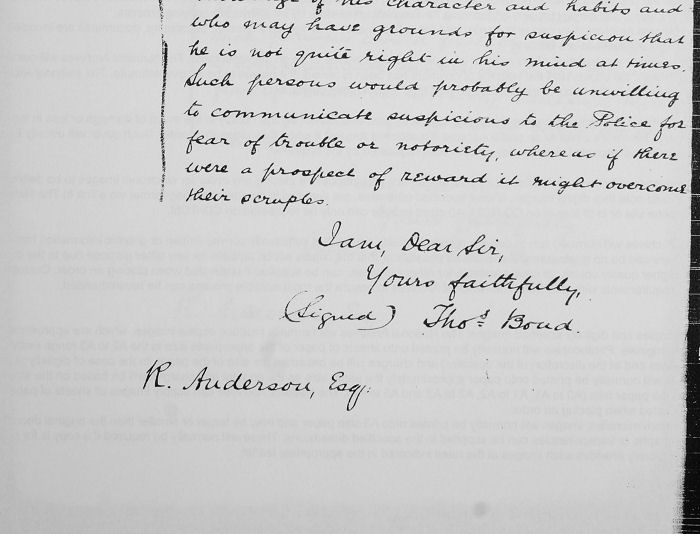 of his character and habits and
who may have grounds for suspicion that
he is not quite right in his mind at times.
Such persons would probably be unwilling
to communicate suspicious to the Police for
fear of trouble or notoriety, whereas if there
were a prospect of reward it might overcome
their scruples.
I am, Dear Sir,
Yours faithfully,
(Signed) Thos. Bond.
R. Anderson, Esq: